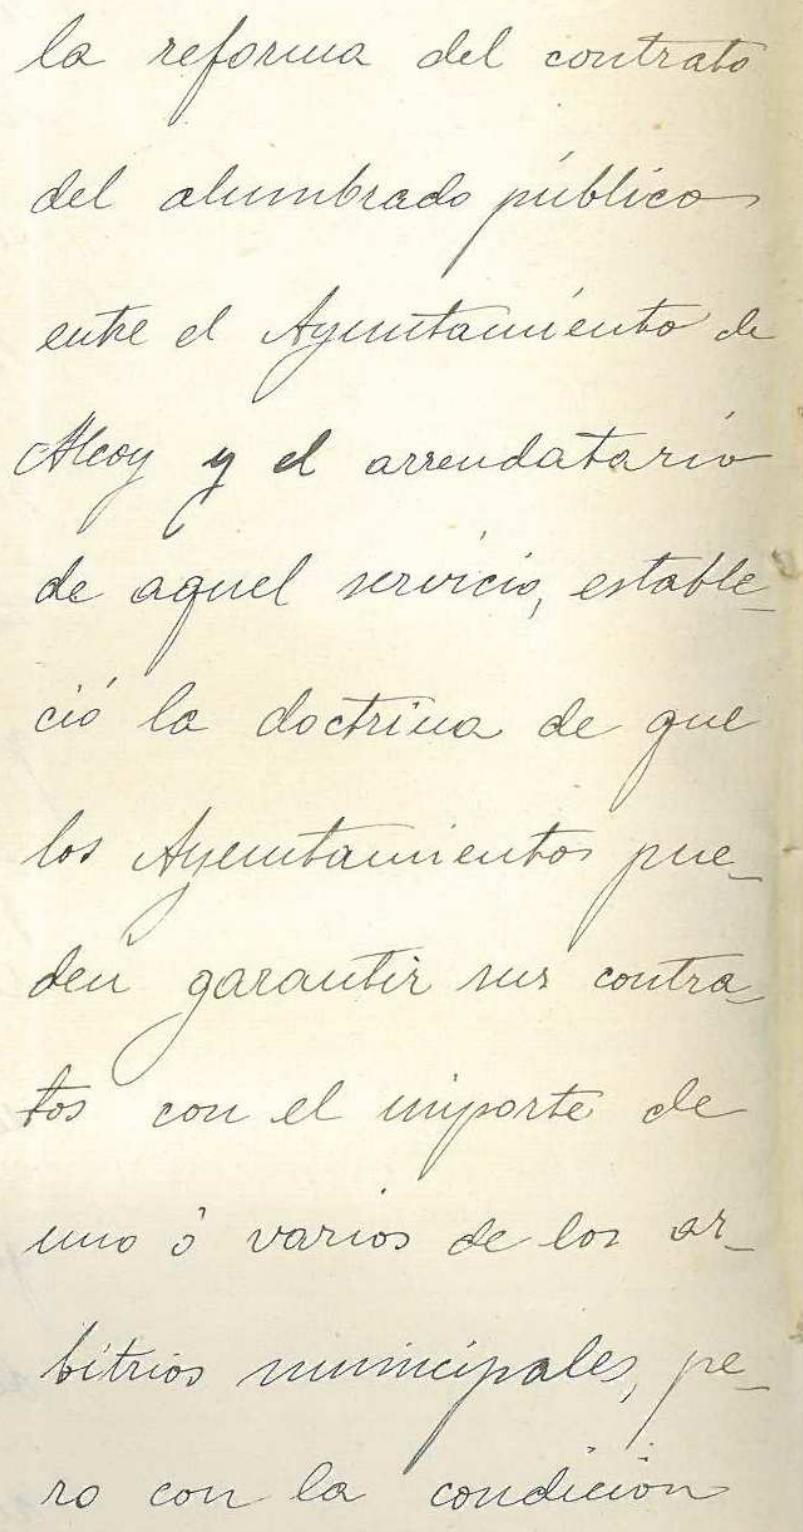 la reforma del contrato
del alumbrado público
entre el Ayuntamiento de
Alcoy y el arrendatario
de aquel servicio, estable_
ció la doctrina de que
los Ayuntamientos pue_
den garantir sus contra_
tos con el importe de
uno ó varios de los ar_
bitrios municipales, pe_
ro con la condicion